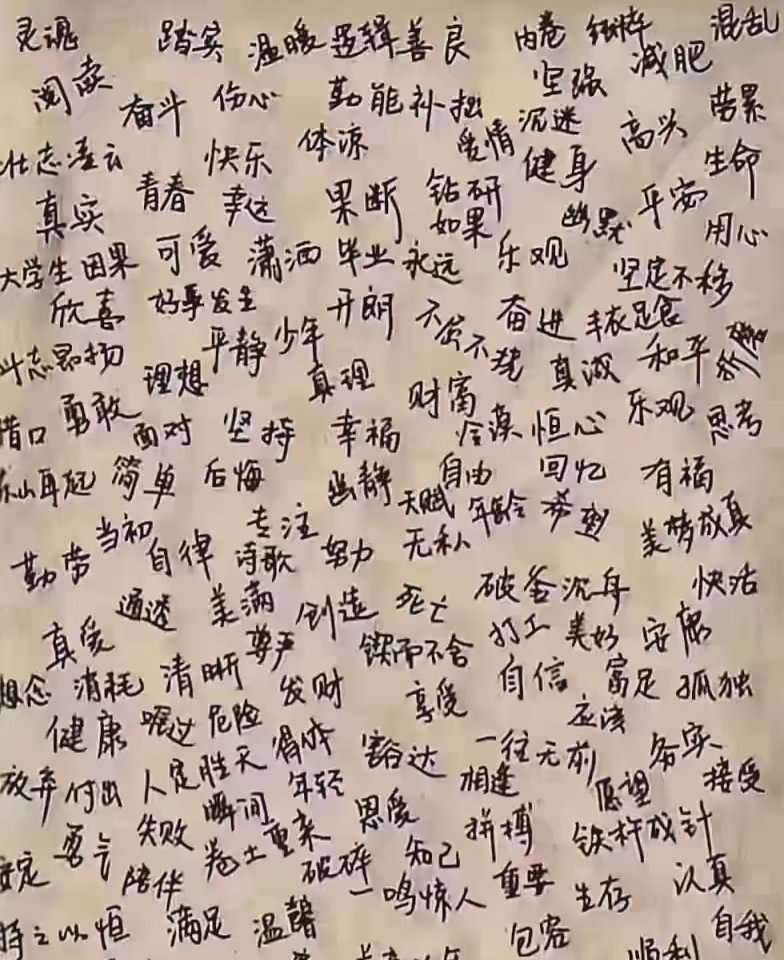 灵魂 踏实 温暖 逻辑 善良 内卷 纯粹 混乱
阅读 奋斗 伤心 勤能补拙 坚强 减肥
壮志凌云 快乐 体谅 爱情 沉迷 高兴 劳累
真实 青春 幸运 果断 钻研 健身 生命
如果 幽默 平安 用心
大学生 因果 可爱 潇洒 毕业 永远 乐观 坚定不移
欣喜 好事发生 开朗 不屈不挠 奋进 丰衣足食
斗志昂扬 平静 少年 真理 真诚 和平
理想 财富
借口 勇敢 面对 坚持 幸福 冷漠 恒心 乐观 思考
东山再起 简单 后悔 幽静 自由 回忆 有福
当初 专注 天赋 年龄 希望 美梦成真
勤劳 自律 诗歌 努力 无私
通透 美满 创造 死亡 破釜沉舟 快活
真爱 尊严 锲而不舍 打工 美好 安康
想念 消耗 清晰 发财 享受 自信 富足 孤独
健康 嘱过 危险 得体 豁达 一往无前 应该 务实
放弃 付出 人定胜天 年轻 相逢 愿望 接受
瞬间 恩爱
勇气 失败 卷土重来 破碎 知己 拼搏 铁杵成针
安定 陪伴 一鸣惊人 重要 生存 认真
持之以恒 满足 温馨 包容 自我
顺利